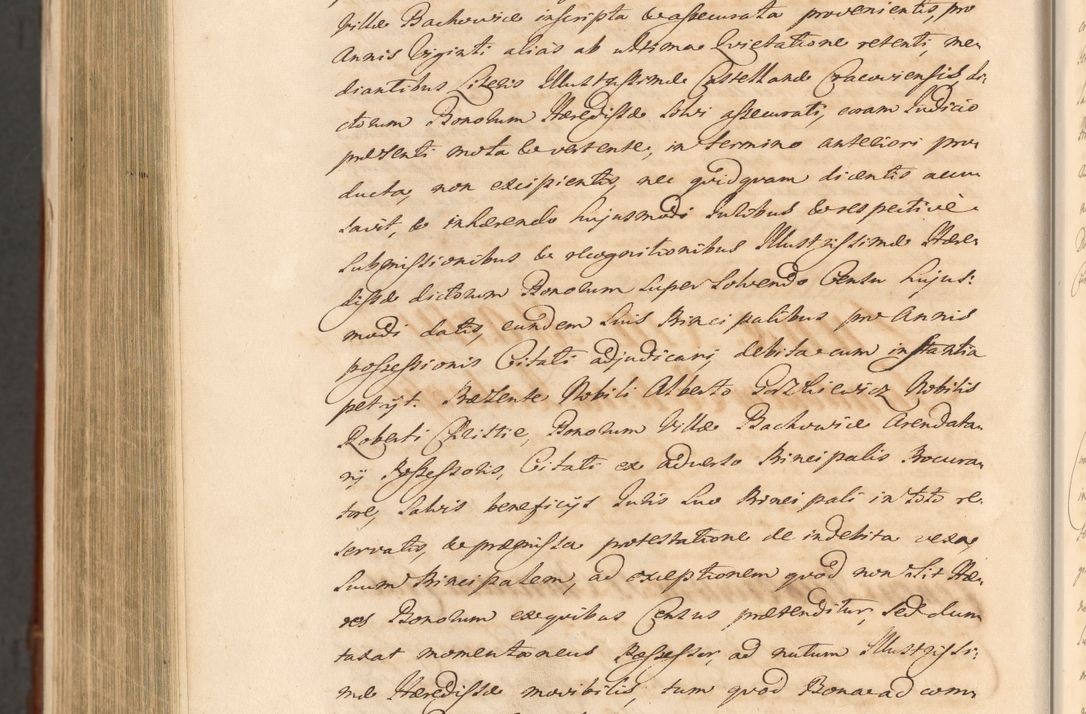 Villæ Bachowice inscripta & assecurata provenientis, pro
Annis Viginti alias ab ultima Quietatione retenti, me-
diantibus Literis Illustrissimæ Castellanæ Cracoviensis di-
ctorum Bonorum Hæredissæ solvi assecurati, coram Judicio
præsenti mota & vertente, in termino anteriori pro-
ducta, non excipientis, nec quidquam dicentis accu-
savit, & inhærendo hujusmodi Juribus & respectivè
Submissionibus & recognitionibus Illustrissimæ Hære-
dissæ dictorum Bonorum super solvendo Censu hujus-
modi datis, eundem suis Principalibus pro Annis
possessionis Citati adjudicari, debita cum instantia
petijt. Præsente Nobili Alberto Nobilis
Roberti Bonorum Villæ Bachowice Arendata-
rij Possessoris, Citati ex adverso Principalis Procura-
tore, salvis beneficijs Juris suo Principali in toto re-
servatis, & præmissa protestatione de indebita vexa,
suum Principalem, ad exceptionem quòd non sit Hæ-
res Bonorum ex quibus Census prætenditur, sed dum
taxat momentaneus Possessor, ad nutum Illustrissi-
mæ Hæredissæ movibilis, tum quod Bona ad com-